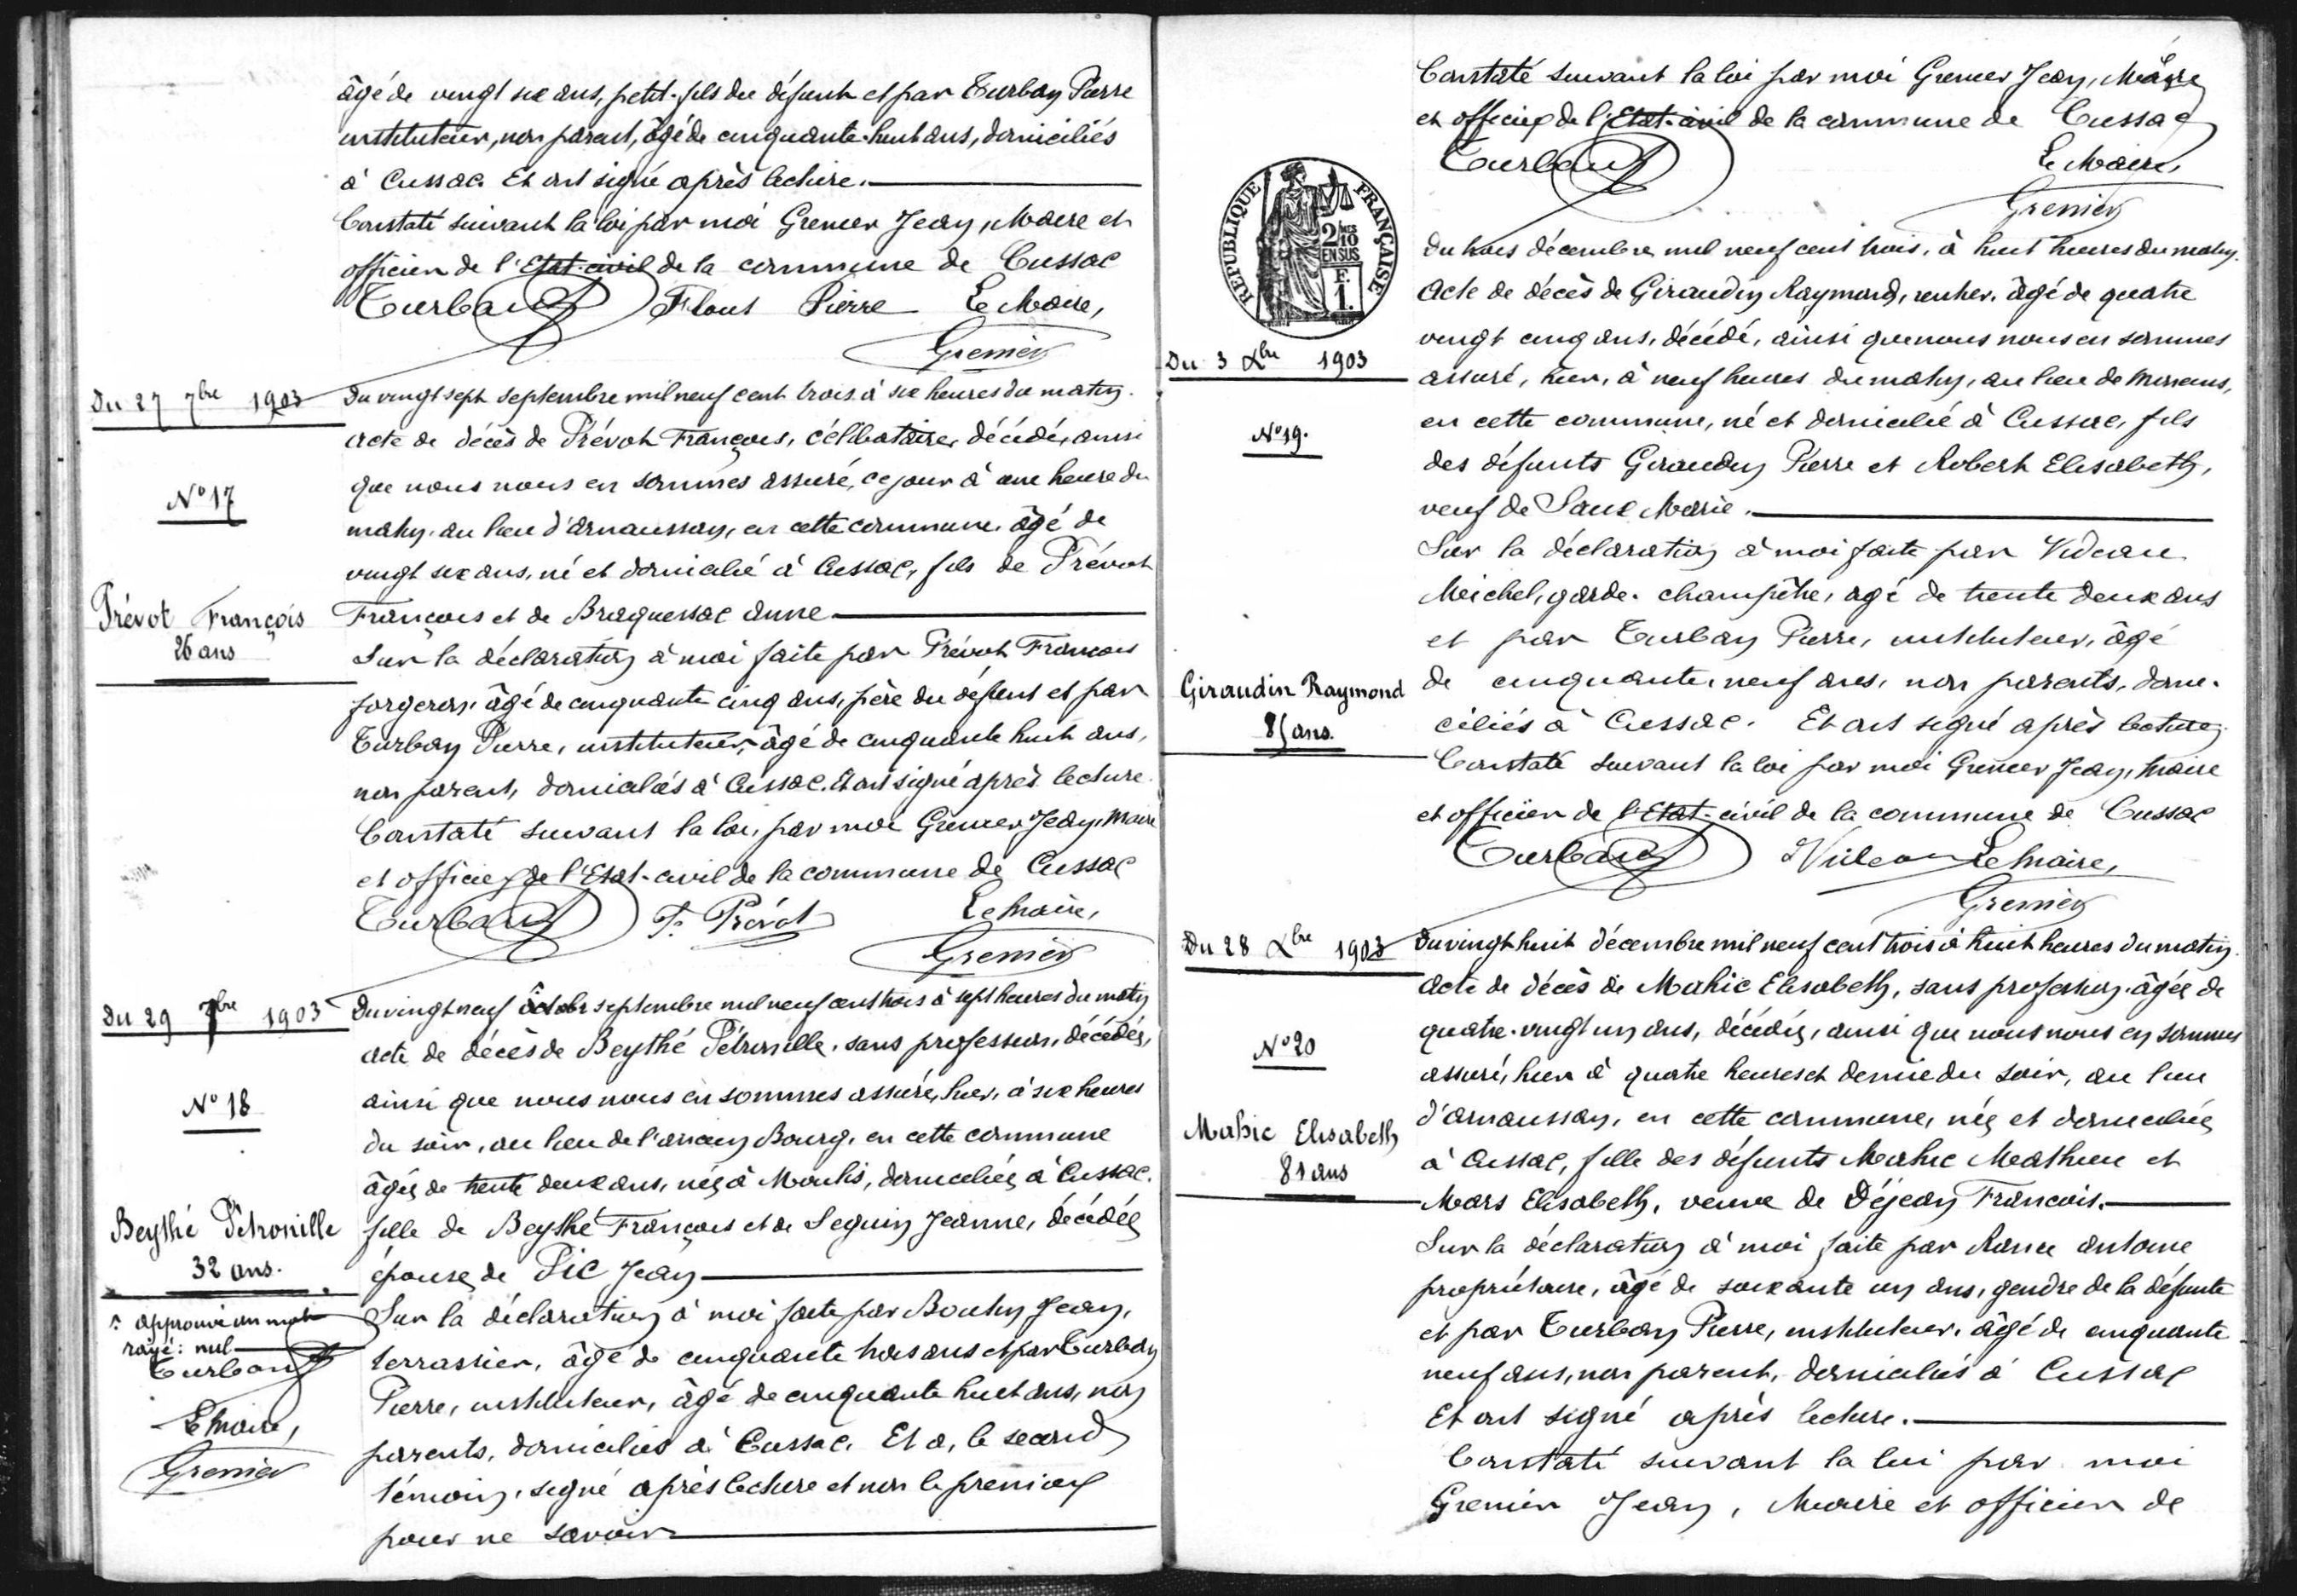 âgé de vingt six ans, petit-fils du défunt et par Turban Pierre
instituteur, non parent, âgé de cinquante-huit ans, domiciliés
à Cussac. Et ont signé après lecture.
Constaté suivant la loi par moi Grenier Jean, Maire et
officier de l'Etat-civil de la commune de Cussac
Turban Flout Pierre Le Maire,
Grenier
Du 27 7bre 1903
Du vingt sept septembre mil neuf cent trois à six heures du matin.
acte de décès de Prévot François, célibataire, décédé, ainsi
que nous nous en sommes assuré, ce jour à une heure du
N° 17
matin, au lieu d'arnaussan, en cette commune, âgé de
vingt six ans, né et domicilié à Cussac, fils de Prévot
Prévot François
26 ans
François et de Braquessac anne
Sur la déclaration à moi faite par Prévot François
forgeron, âgé de cinquante cinq ans, père du défunt et par
Turban Pierre, instituteur, âgé de cinquante huit ans,
non parent, domiciliés à Cussac. Et ont signé après lecture.
Constaté suivant la loi, par moi Grenier Jean, Maire
et officier de l'Etat-civil de la commune de Cussac
Turban F. Prévot Le Maire,
Grenier
Du 29 7bre 1903
Du vingt neuf octobre septembre mil neuf cent trois à sept heures du matin
acte de décès de Beythé Pétronille, sans profession, décédée,
ainsi que nous nous en sommes assuré, hier, à six heures
N° 18
du soir, au lieu de l'ancien Bourg, en cette commune
âgée de trente deux ans, née à Moulis, domiciliée à Cussac.
Beythé Pétronille
32 ans.
fille de Beythé François et de Seguin Jeanne, décédée
épouse de Pic Jean
: approuvé un mot
rayé: nul
Turban
Le Maire,
Grenier
Sur la déclaration à moi faite par Boutin Jean,
terrassier, âgé de cinquante trois ans et par Turban
Pierre, instituteur, âgé de cinquante huit ans, non
parents, domiciliés à Cussac. Et a, le second
témoin, signé après lecture et non le premier
pour ne savoir
Constaté suivant la loi par moi Grenier Jean, Maire
et officier de l'Etat-civil de la commune de Cussac
Turban Le Maire,
Grenier
REPUBLIQUE FRANÇAISE
2/10 EN SUS
F.
1.
Du 3 Xbre 1903
Du trois décembre mil neuf cent trois, à huit heures du matin.
Acte de décès de Giraudin Raymond, rentier, âgé de quatre
vingt cinq ans, décédé, ainsi que nous nous en sommes
assuré, hier, à neuf heures du matin, au lieu de
en cette commune, né et domicilié à Cussac, fils
N° 19.
des défunts Giraudin Pierre et Robert Elisabeth,
veuf de Saux Marie.
Sur la déclaration à moi faite par Videau
Michel, garde-champêtre, âgé de trente deux ans
et par Turban Pierre, instituteur, âgé
Giraudin Raymond
85 ans.
de cinquante neuf ans, non parents, domi-
ciliés à Cussac. Et ont signé après lecture.
Constaté suivant la loi par moi Grenier Jean, Maire
et officier de l'Etat-civil de la commune de Cussac
Turban Videau Le Maire,
Grenier
Du 28 Xbre 1903
Du vingt huit décembre mil neuf cent trois à huit heures du matin.
Acte de décès de Mahic Elisabeth, sans profession, âgée de
quatre-vingt un ans, décédée, ainsi que nous nous en sommes
N° 20
assuré, hier à quatre heures et demie du soir, au lieu
d'arnaussan, en cette commune, née et domiciliée
Mahic Elisabeth
81 ans
à Cussac, fille des défunts Mahic Mathieu et
Mars Elisabeth, veuve de Déjean François.
Sur la déclaration à moi faite par antoine
propriétaire, âgé de soixante un ans, gendre de la défunte
et par Turban Pierre, instituteur, âgé de cinquante
neuf ans, non parent, domiciliés à Cussac
Et ont signé après lecture.
Constaté suivant la loi par moi
Grenier Jean, Maire et officier de